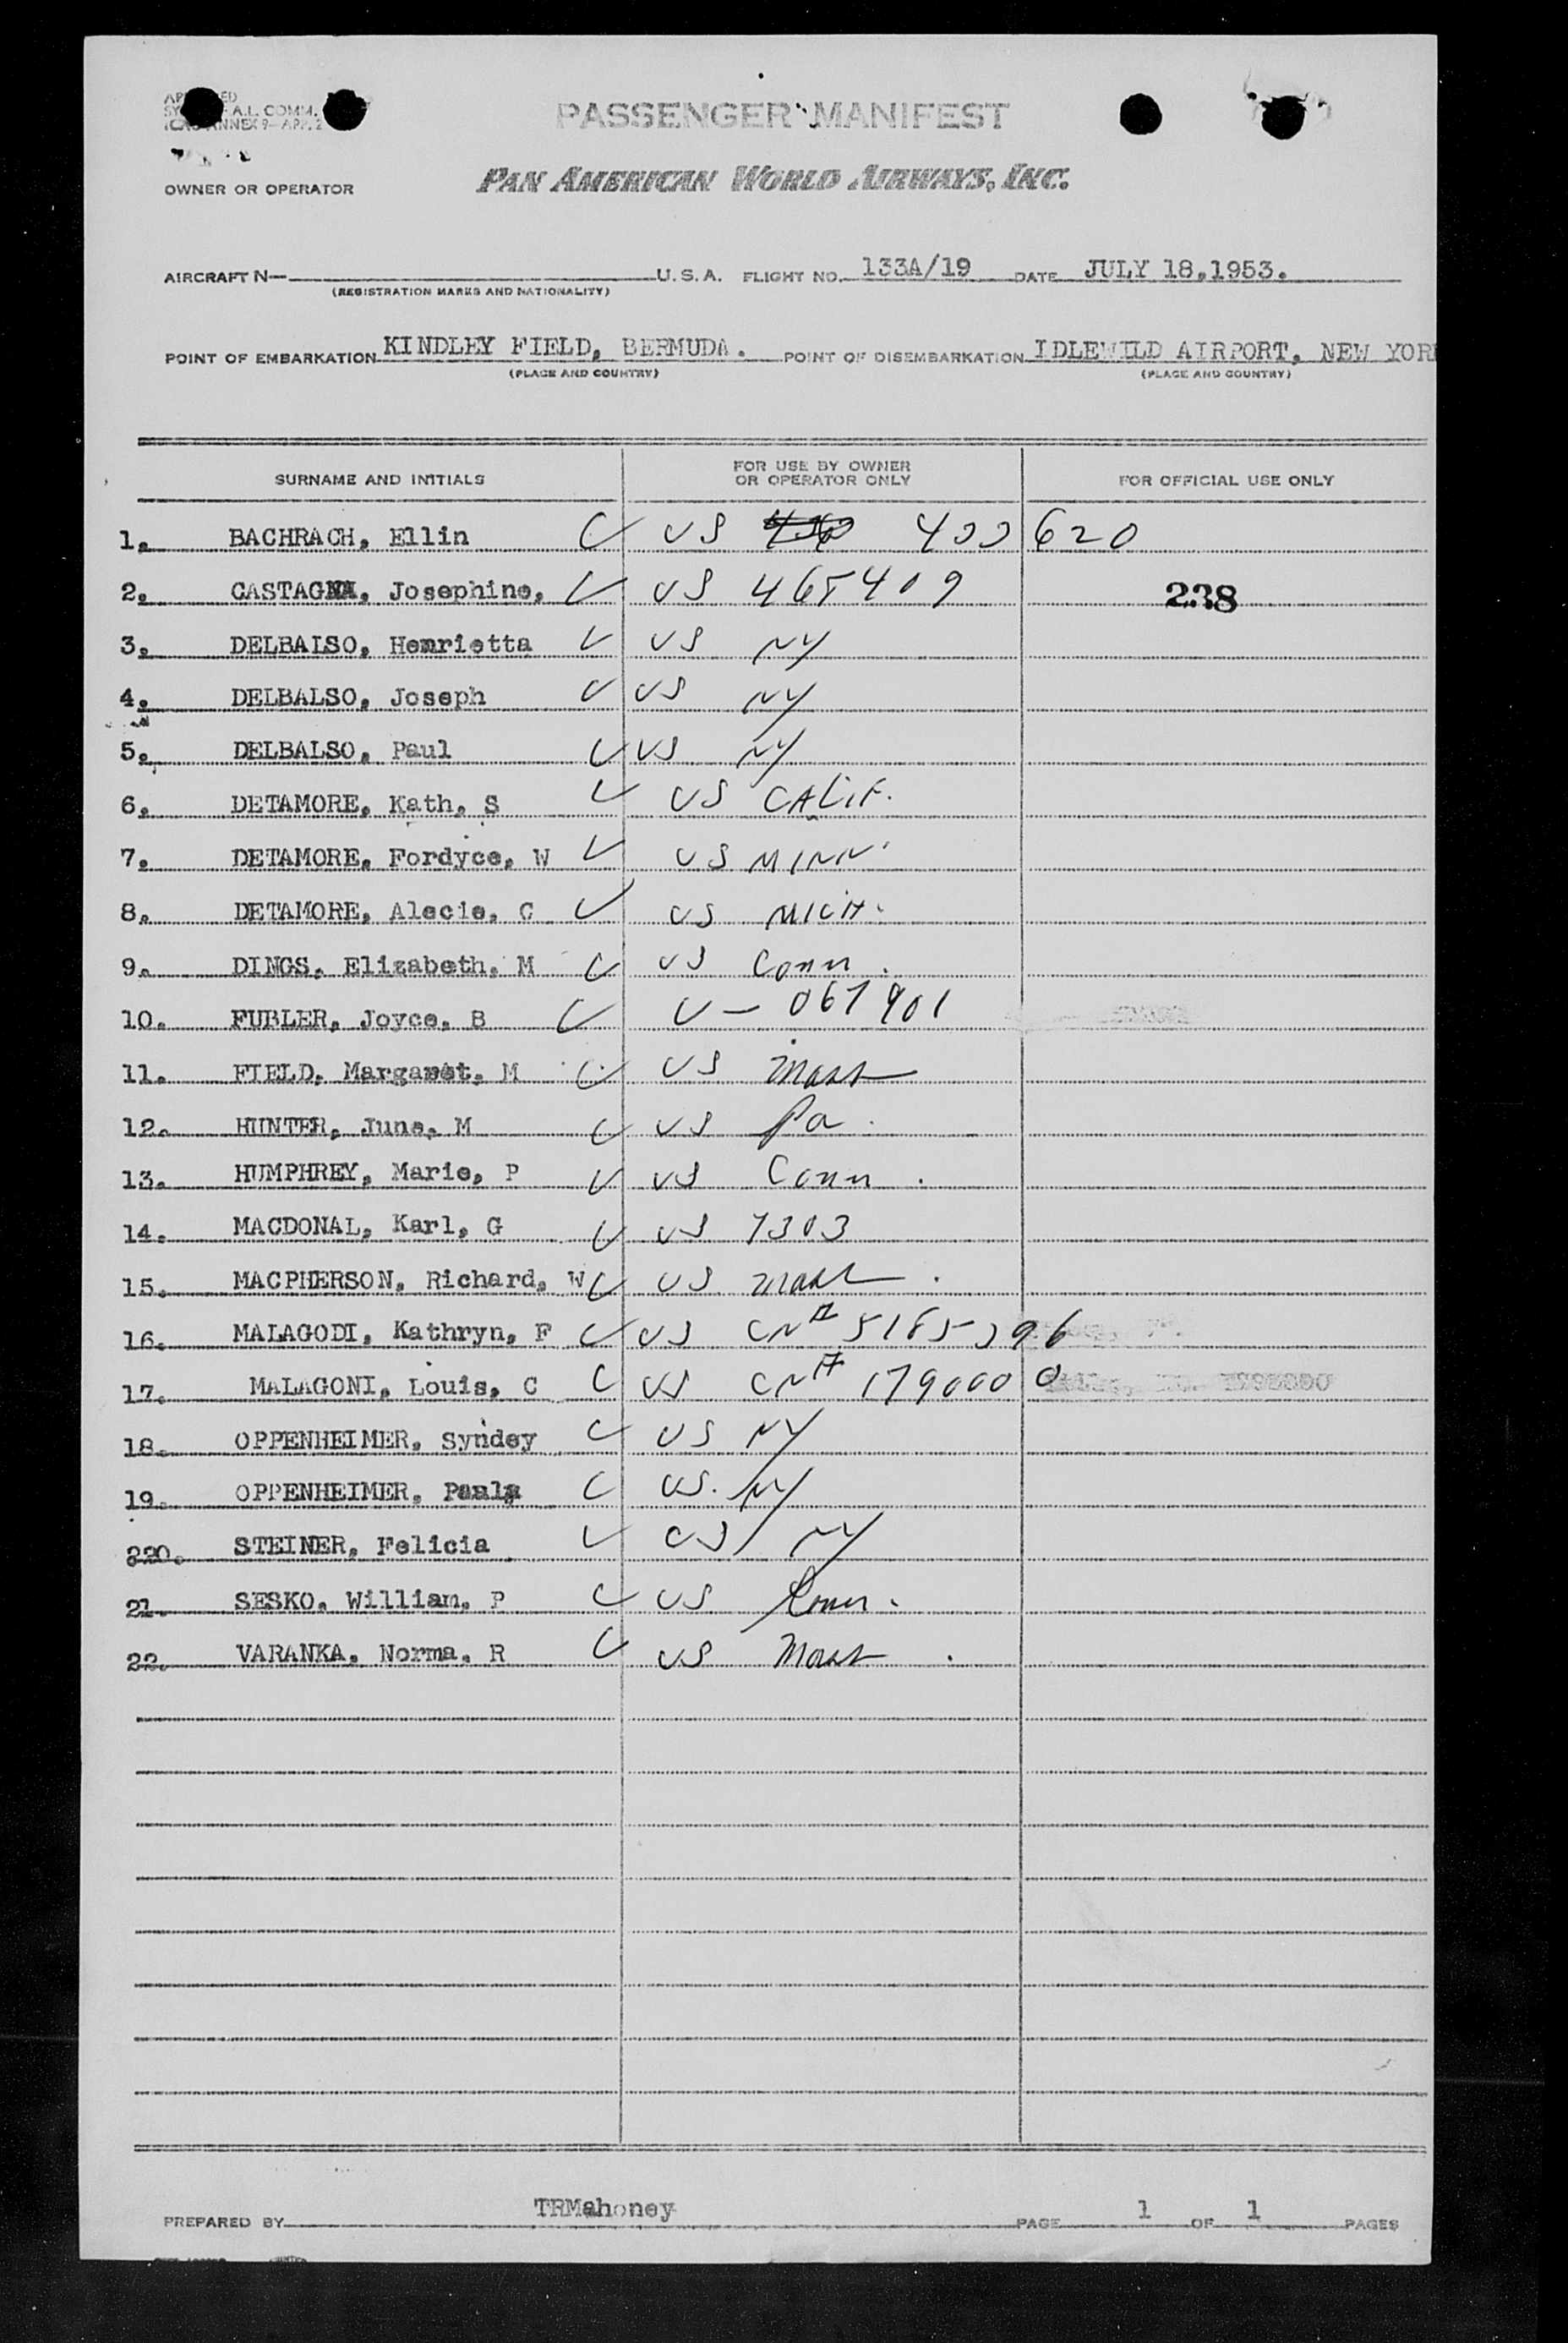 PASSENGER MANIFEST
A.L. COMM.
ANNEX 9—APP. 2
OWNER OR OPERATOR PAN AMERICAN WORLD AIRWAYS, INC.
AIRCRAFT N— U. S. A. FLIGHT NO. 133A/19 DATE JULY 18,1953.
(REGISTRATION MARKS AND NATIONALITY)
POINT OF EMBARKATION KINDLEY FIELD, BERMUDA. POINT OF DISEMBARKATION IDLEWILD AIRPORT, NEW YOR
(PLACE AND COUNTRY) (PLACE AND COUNTRY)
SURNAME AND INITIALS FOR USE BY OWNER OR OPERATOR ONLY FOR OFFICIAL USE ONLY
1. BACHRACH, Ellin US 433620
2. Josephine, US 465409 238
3. DELBALSO, Henrietta US NY
4. DELBALSO, Joseph US NY
5. DELBALSO, Paul US NY
6. DETAMORE, Kath, S US CALIF.
7. DETAMORE, Fordyce, W US MINN.
8. DETAMORE, Alecie, C US MICH.
9. DINGS, Elizabeth, M US Conn.
10. FUBLER, Joyce, B V- 067901
11. FIELD, Margaret, M US Mass
12. HUNTER, June, M US Pa.
13. HUMPHREY, Marie, P US Conn.
14. MACDONAL, Karl, G US 7303
15. MACPHERSON, Richard, W US Mass.
16. MALAGODI, Kathryn, F US CN# 5185396
17. MALAGONI, Louis, C US CN# 1790000
18. OPPENHEIMER, Syndey US NY
19. OPPENHEIMER, Paula US. NY
220. STEINER, Felicia US NY
21. SESKO, William, P US Conn.
22. VARANKA, Norma, R US Mass.
PREPARED BY TRMahoney PAGE 1 OF 1 PAGES